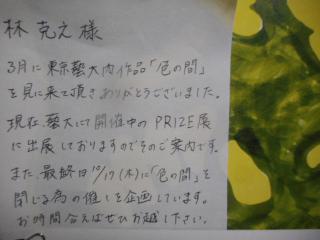 林 克之 様
3月に東京藝大内作品「色の間」
を見に来て頂きありがとうございました。
現在、藝大にて開催中の PRIZE展
に出展しておりますのでそのご案内です。
また、最終日 12/17(木)に「色の間」を
閉じる為の催しを企画しています。
お時間合えばぜひお越し下さい。